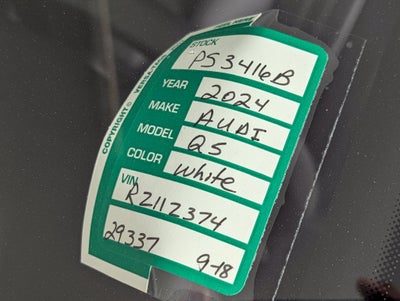 STOCK
PS3416B
YEAR 2024
MAKE AUDI
MODEL Q5
COLOR White
VIN
R2112374
29337 9-18
COPYRIGHT©